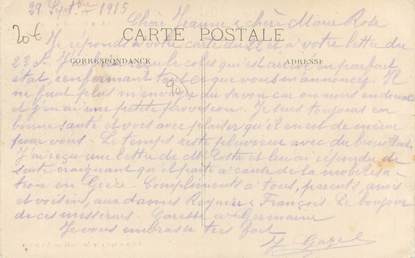 29 Sept bre 1915
20€
Chère Jeanne & chère Marie Rose
CARTE POSTALE
Je réponds à votre carte du 21 et à votre lettre du
23 ct. J'ai bien reçu le colis qui est arrivé en parfait
CORRESPONDANCE
ADRESSE
état renfermant tout ce que vous m'annoncez. Il
ne faut plus m'envoyer du savon car on nous en donne
et j'en ai une petite provision. Je suis toujours en
bonne santé et vois avec plaisir qu'il en est de même
pour vous. Le temps reste pluvieux avec du brouillard.
J'ai reçu une lettre de Mr et lui ai répondu de
suite craignant qu'il parte à cause de la mobilisa-
tion en Grèce. Compliments à tous, parents, amis
et voisins, aux dames & François. Le bonjour
de ces messieurs. Caresses à Germaine
Je vous embrasse très fort